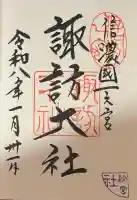 信濃國一之宮
諏訪大社
令和八年一月卅一日